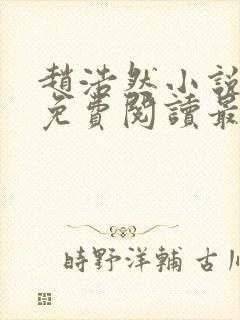 趙浩然小說
免費閱讀最
時野洋輔 古川